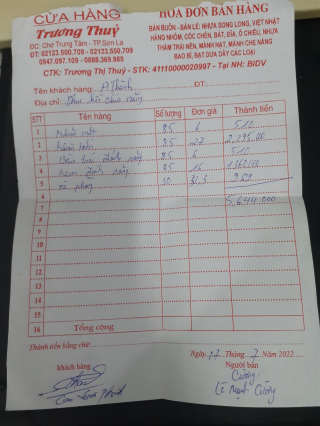 CỬA HÀNG
Trương Thuỷ
ĐC: Chợ Trung Tâm - TP.Sơn La
ĐT: 02123.500.709 - 02123.550.709
0947.097.109 - 0888.365.989
HÓA ĐƠN BÁN HÀNG
BÁN BUÔN - BÁN LẺ: NHỰA SONG LONG, VIỆT NHẬT
HÀNG NHÔM, CỐC CHÉN, BÁT, ĐĨA, Ô CHIẾU, NHỰA
THẢM TRẢI NỀN, MÀNH HẠT, MÀNH CHE NẮNG
BAO BÌ, BẠT DỨA DÂY CÁC LOẠI
CTK: Trương Thị Thuỷ - STK: 41110000020997 - Tại NH: BIDV
Tên khách hàng: ĐT:
Địa chỉ:
STT Tên hàng Số lượng Đơn giá Thành tiền
1 85 6 510
2 85 27 2.295.000
3 85 6 510
4 85 16 1.360.000
5 xà phòng
6
7 5.644.000
8
9
10
11
12
13
14
15
16 Tổng cộng
Thành tiền bằng chữ:
Ngày 17 Tháng 7 năm 2022
khách hàng Người bán
Cường
Lê Mạnh Cường